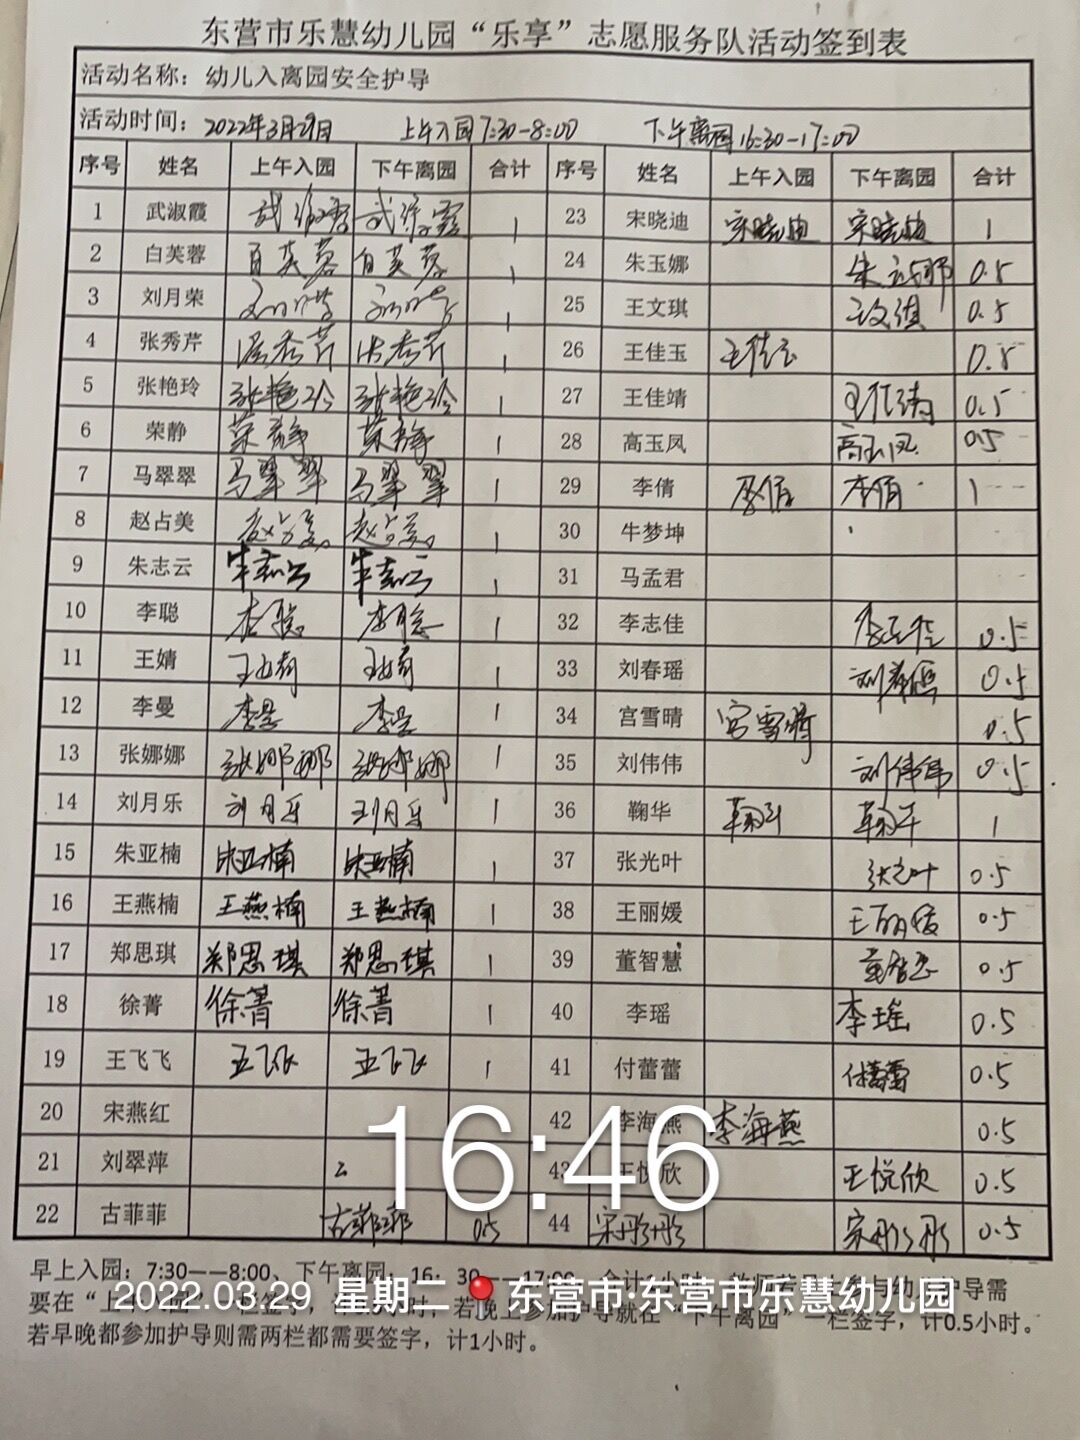 东营市乐慧幼儿园“乐享”志愿服务队活动签到表
活动名称：幼儿入离园安全护导
活动时间：2022年3月29日 上午入园7:30-8:00 下午离园16:30-17:00
序号 姓名 上午入园 下午离园 合计 序号 姓名 上午入园 下午离园 合计
1 武淑霞 武淑霞 武淑霞 1 23 宋晓迪 宋晓迪 宋晓迪 1
2 白芙蓉 白芙蓉 白芙蓉 1 24 朱玉娜 朱玉娜 0.5
3 刘月荣 刘月荣 刘月荣 1 25 王文琪 王文琪 0.5
4 张秀芹 张秀芹 张秀芹 1 26 王佳玉 王佳玉 0.5
5 张艳玲 张艳玲 张艳玲 1 27 王佳靖 王佳靖 0.5
6 荣静 荣静 荣静 1 28 高玉凤 高玉凤 0.5
7 马翠翠 马翠翠 马翠翠 1 29 李倩 李倩 李倩 1
8 赵占美 赵占美 赵占美 1 30 牛梦坤
9 朱志云 朱志云 朱志云 1 31 马孟君
10 李聪 李聪 李聪 1 32 李志佳 李志佳 0.5
11 王婧 王婧 王婧 1 33 刘春瑶 刘春瑶 0.5
12 李曼 李曼 李曼 1 34 宫雪晴 宫雪晴 0.5
13 张娜娜 张娜娜 张娜娜 1 35 刘伟伟 刘伟伟 0.5
14 刘月乐 刘月乐 刘月乐 1 36 鞠华 鞠华 鞠华 1
15 朱亚楠 朱亚楠 朱亚楠 1 37 张光叶 张光叶 0.5
16 王燕楠 王燕楠 王燕楠 1 38 王丽媛 王丽媛 0.5
17 郑思琪 郑思琪 郑思琪 1 39 董智慧 董智慧 0.5
18 徐菁 徐菁 徐菁 1 40 李瑶 李瑶 0.5
19 王飞飞 王飞飞 王飞飞 1 41 付蕾蕾 付蕾蕾 0.5
20 宋燕红 42 李海燕 李海燕 0.5
21 刘翠萍 43 王悦欣 王悦欣 0.5
22 古菲菲 古菲菲 0.5 44 宋彤彤 宋彤彤 0.5
16:46
早上入园：7:30——8:00、下午离园：16：30——17:00
要在“上 若晚上参加护导就在“下午离园”一栏签字，计0.5小时。
若早晚都参加护导则需两栏都需要签字，计1小时。
2022.03.29 星期二 东营市·东营市乐慧幼儿园